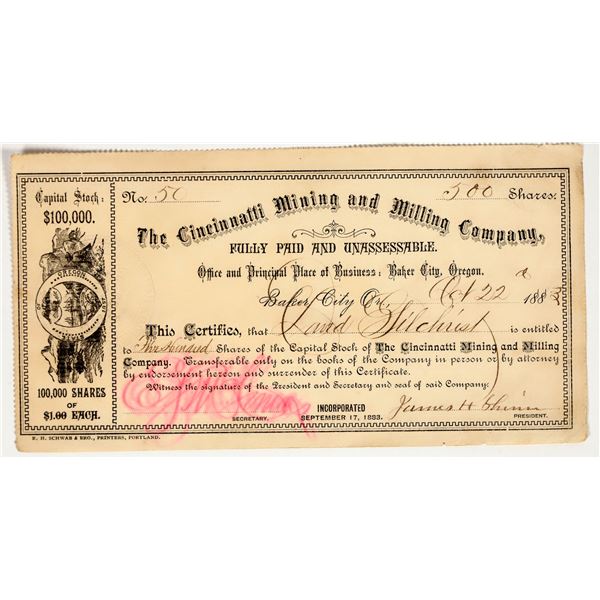 Capital Stock:
$100,000.
OREGON
100,000 SHARES
OF
$1.00 EACH.
No. 50 500 Shares.
The Cincinnatti Mining and Milling Company,
FULLY PAID AND UNASSESSABLE.
Office and Principal Place of Business: Baker City, Oregon.
Baker City Or, Oct 22 1883
This Certifies, that David Gilchrist is entitled
to Five Hundred Shares of the Capital Stock of The Cincinnatti Mining and Milling
Company. Transferable only on the books of the Company in person or by attorney
by endorsement hereon and surrender of this Certificate.
Witness the signature of the President and Secretary and seal of said Company:
SECRETARY.
INCORPORATED
SEPTEMBER 17, 1883.
James H
PRESIDENT.
E. H. SCHWAB & BRO., PRINTERS, PORTLAND.